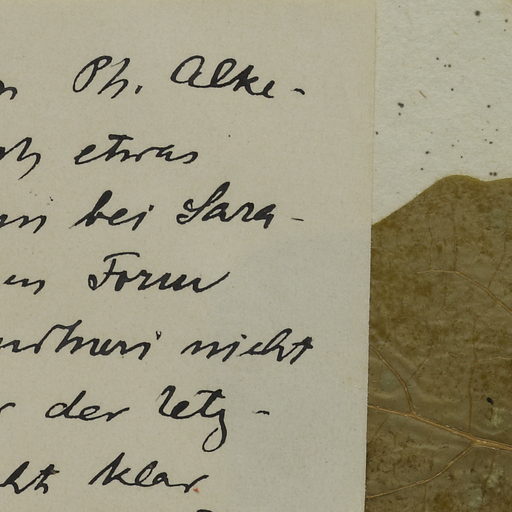 Ph. Alke-
etwas
bei Sara-
Form
nicht
der letz-
klar